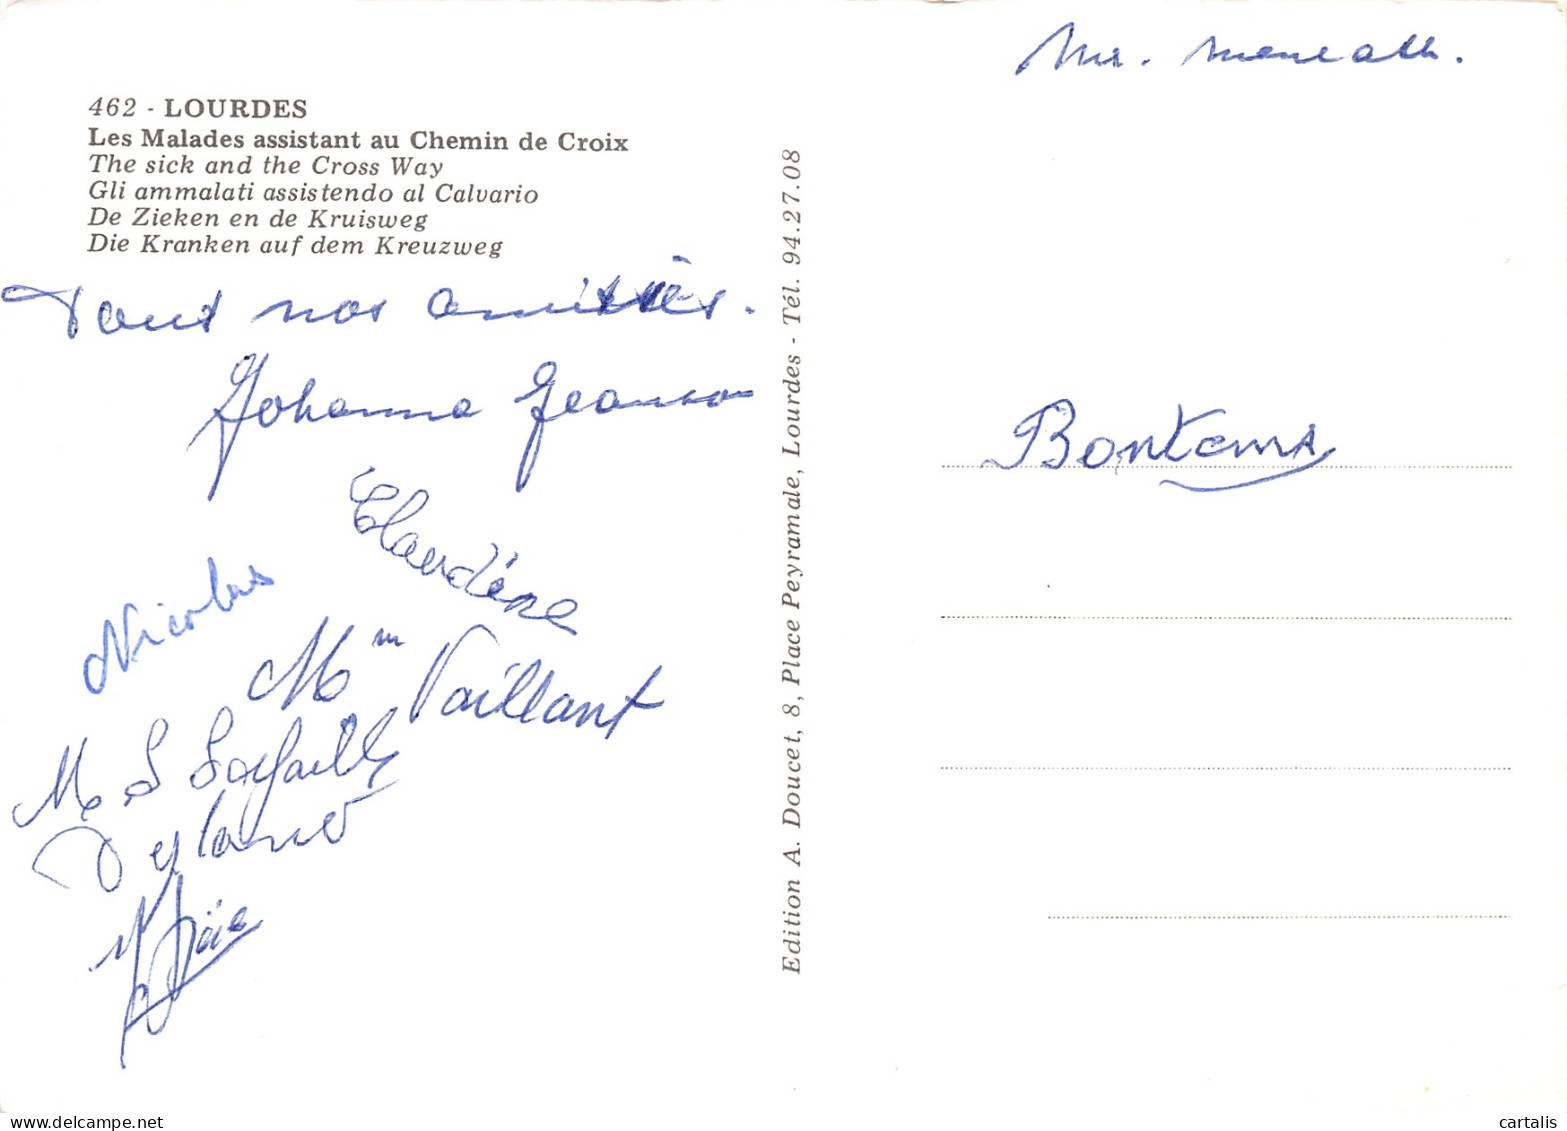 462 - LOURDES
Les Malades assistant au Chemin de Croix
The sick and the Cross Way
Gli ammalati assistendo al Calvario
De Zieken en de Kruisweg
Die Kranken auf dem Kreuzweg
nos amitiés.
Johanna
Claudine
Nicolas
Mm Vaillant
Edition A. Doucet, 8, Place Peyramale, Lourdes - Tél. 94.27.08
Mr.
Bontems
www.delcampe.net
cartalis